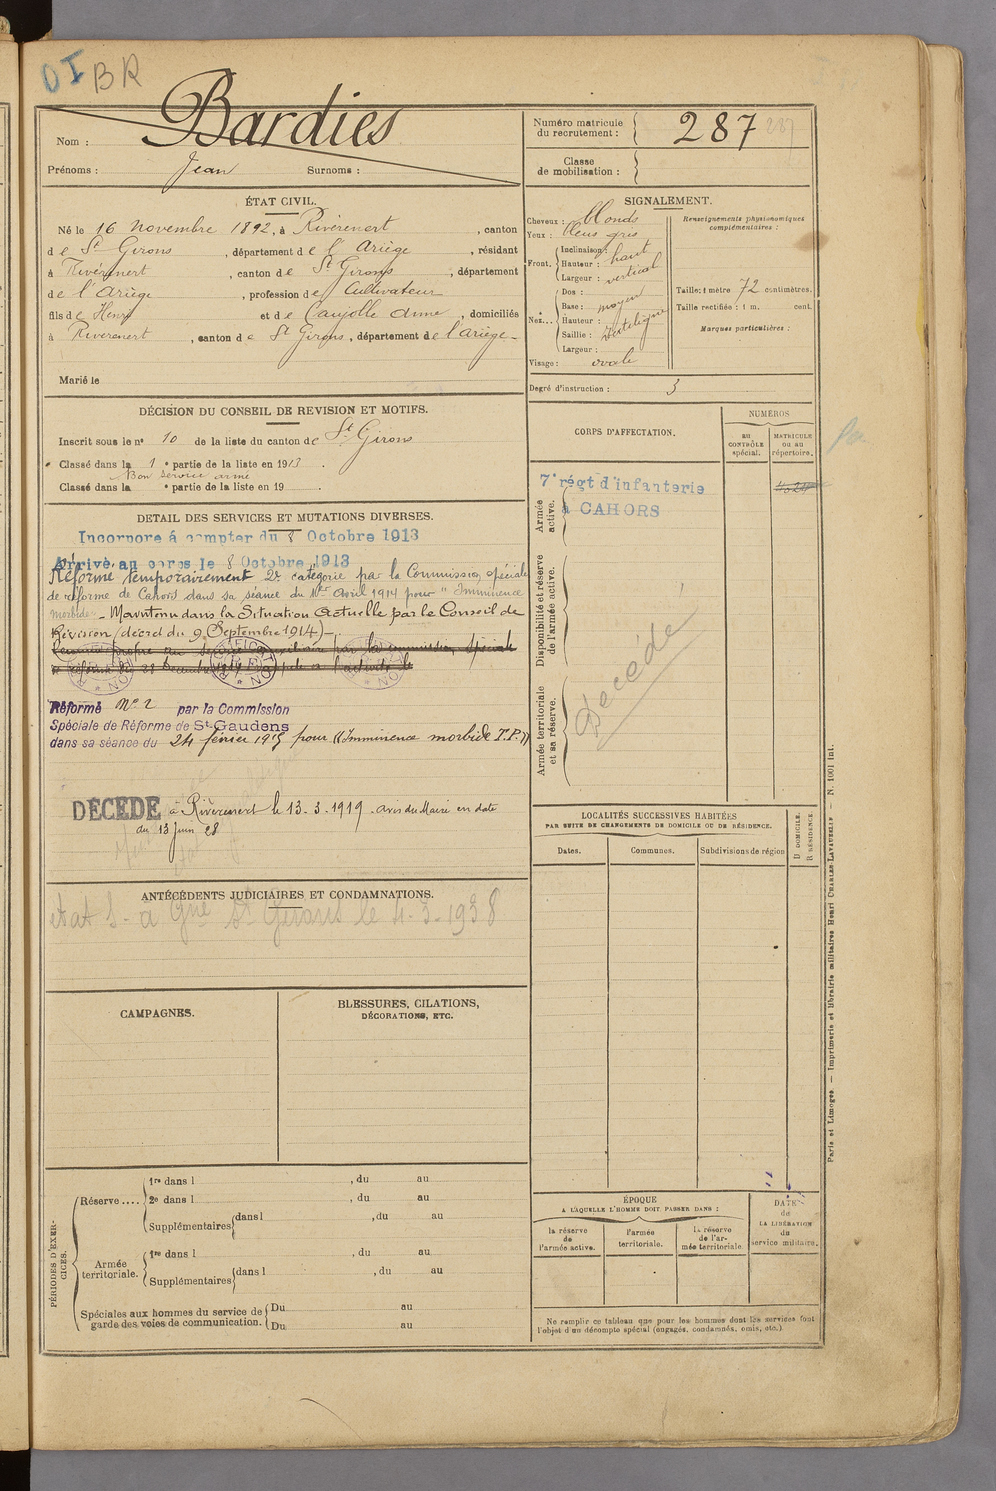 OI BR
Nom : Bardies
Prénoms : Jean Surnoms :
Numéro matricule du recrutement : 287 287
Classe de mobilisation :
ÉTAT CIVIL.
Né le 16 novembre 1892, à Rivèrenert, canton
de St Girons, département de l'Ariège, résidant
à Rivèrenert, canton de St Girons, département
de l'Ariège, profession de Cultivateur
fils de Henry et de Caujolle Anne, domiciliés
à Rivèrenert, canton de St Girons, département de l'Ariège-
Marié le
SIGNALEMENT.
Cheveux : blonds
Yeux : bleus gris
Front. Inclinaison :
Hauteur : haut
Largeur : vertical
Nez... Dos :
Base : moyen
Hauteur :
Saillie :
Largeur :
Visage : ovale
Renseignements physionomiques complémentaires :
Taille : 1 mètre 72 centimètres.
Taille rectifiée : 1 m. cent.
Marques particulières :
Degré d'instruction : 3
DÉCISION DU CONSEIL DE REVISION ET MOTIFS.
Inscrit sous le n° 10 de la liste du canton de St Girons
Classé dans la 1e partie de la liste en 1913.
Bon service armé
Classé dans la e partie de la liste en 19 .
CORPS D'AFFECTATION.
NUMÉROS
AU CONTRÔLE spécial.
MATRICULE OU AU répertoire.
Armée active.
7e régt d'infanterie
à CAHORS
Disponibilité et réserve de l'armée active.
Armée territoriale et sa réserve.
Décédé
DETAIL DES SERVICES ET MUTATIONS DIVERSES.
Incorporé à compter du 8 Octobre 1913
Arrivé au corps le 8 Octobre 1913
Réformé temporairement 2e catégorie par la Commission spéciale
de réforme de Cahors dans sa séance du 1er Avril 1914 pour "Imminence
morbide - Maintenu dans la Situation Actuelle par le Conseil de
Révision (décret du 9 Septembre 1914)-
Réformé N° 2 par la Commission
Spéciale de Réforme de St Gaudens
dans sa séance du 24 février 1915 pour "Imminence morbide T.P."
DÉCÉDÉ à Rivèrenert le 13-3-1919 avis du Maire en date
du 13 Juin 28
ANTÉCÉDENTS JUDICIAIRES ET CONDAMNATIONS.
état S- à Gné St Girons le 4-3-1938
CAMPAGNES.
BLESSURES, CITATIONS, DÉCORATIONS, ETC.
LOCALITÉS SUCCESSIVES HABITÉES
PAR SUITE DE CHANGEMENTS DE DOMICILE OU DE RÉSIDENCE.
Dates. Communes. Subdivisions de région
D DOMICILE.
R RÉSIDENCE.
PÉRIODES D'EXERCICES.
Réserve.... 1re dans l , du au
2e dans l , du au
Supplémentaires dans l , du au
Armée territoriale. 1re dans l , du au
Supplémentaires dans l , du au
Spéciales aux hommes du service de garde des voies de communication. Du au
Du au
ÉPOQUE
A LAQUELLE L'HOMME DOIT PASSER DANS :
la réserve de l'armée active.
l'armée territoriale.
la réserve de l'armée territoriale.
DATE de LA LIBÉRATION du service militaire.
Ne remplir ce tableau que pour les hommes dont les services font
l'objet d'un décompte spécial (engagés, condamnés, omis, etc.)
Paris et Limoges. — Imprimerie et librairie militaires Henri CHARLES-LAVAUZELLE — N. 1001 int.